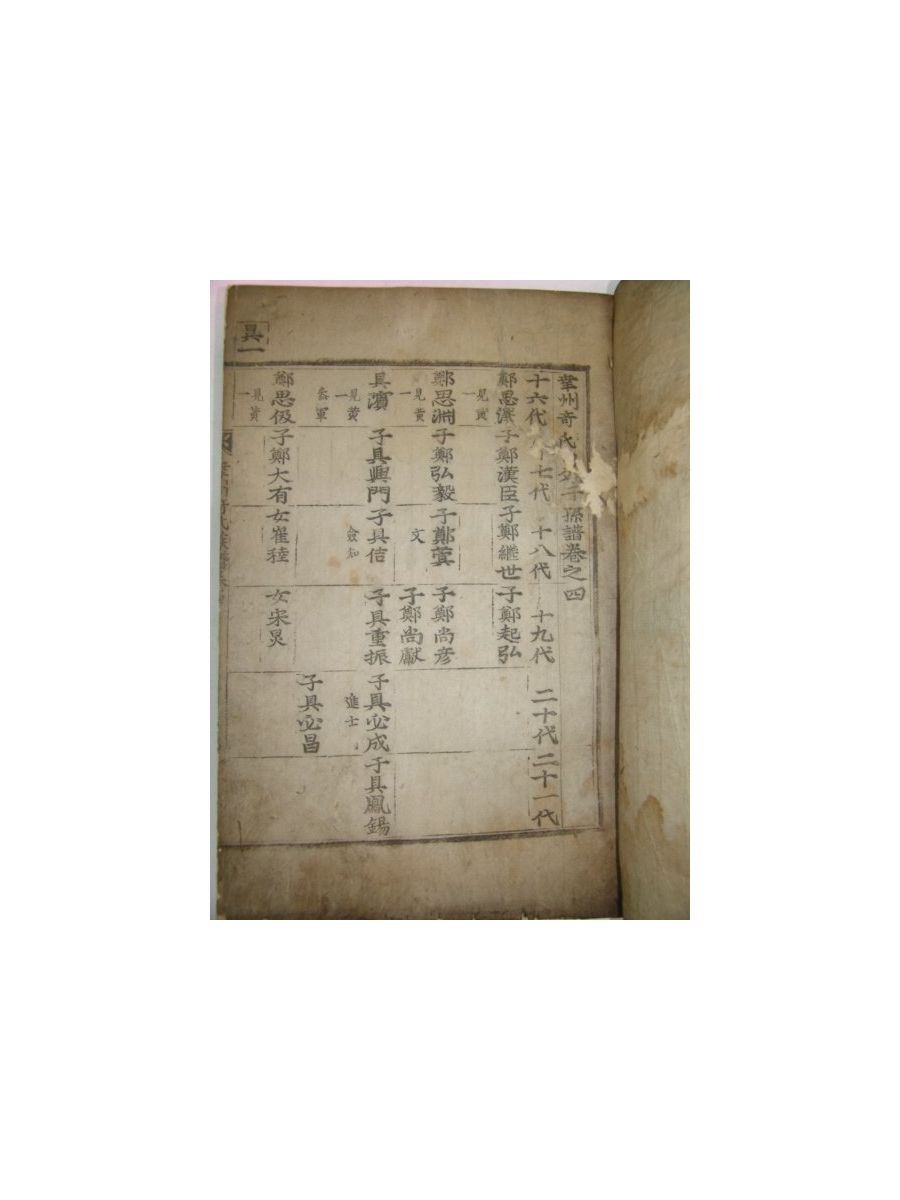 幸州奇氏外子孫譜卷之四
十六代 十七代 十八代 十九代 二十代 二十一代
鄭思 子鄭漢臣 子鄭繼世 子鄭起弘
見黃一
鄭思淵 子鄭弘毅 子鄭 子鄭尚彦
見黃一 文 子鄭尚獻
具濱 子具興門 子具佶 子具重振 子具必成 子具鳳錫
見黃一 僉知 進士
叅軍
子具必昌
鄭思伋 子鄭大有 女崔稑 女宋炅
見黃一
具一